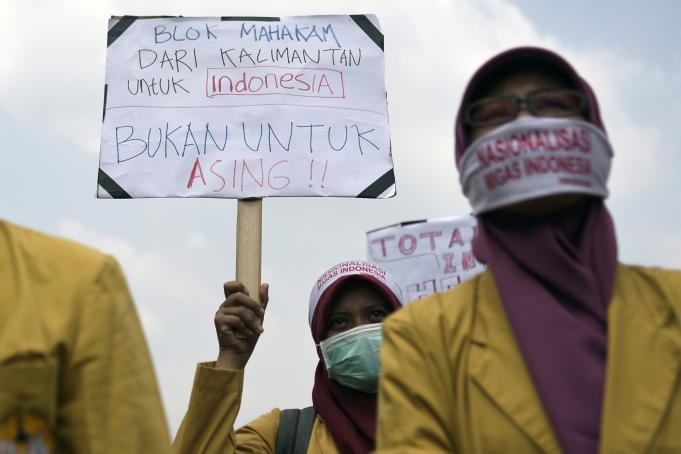 BLOK MAHAKAM
DARI KALIMANTAN
UNTUK INDONESIA
BUKAN UNTUK
ASING !!
NASIONALISASI
MIGAS INDONESIA
NASIONALISASI
MIGAS INDONESIA
TOTA
IN